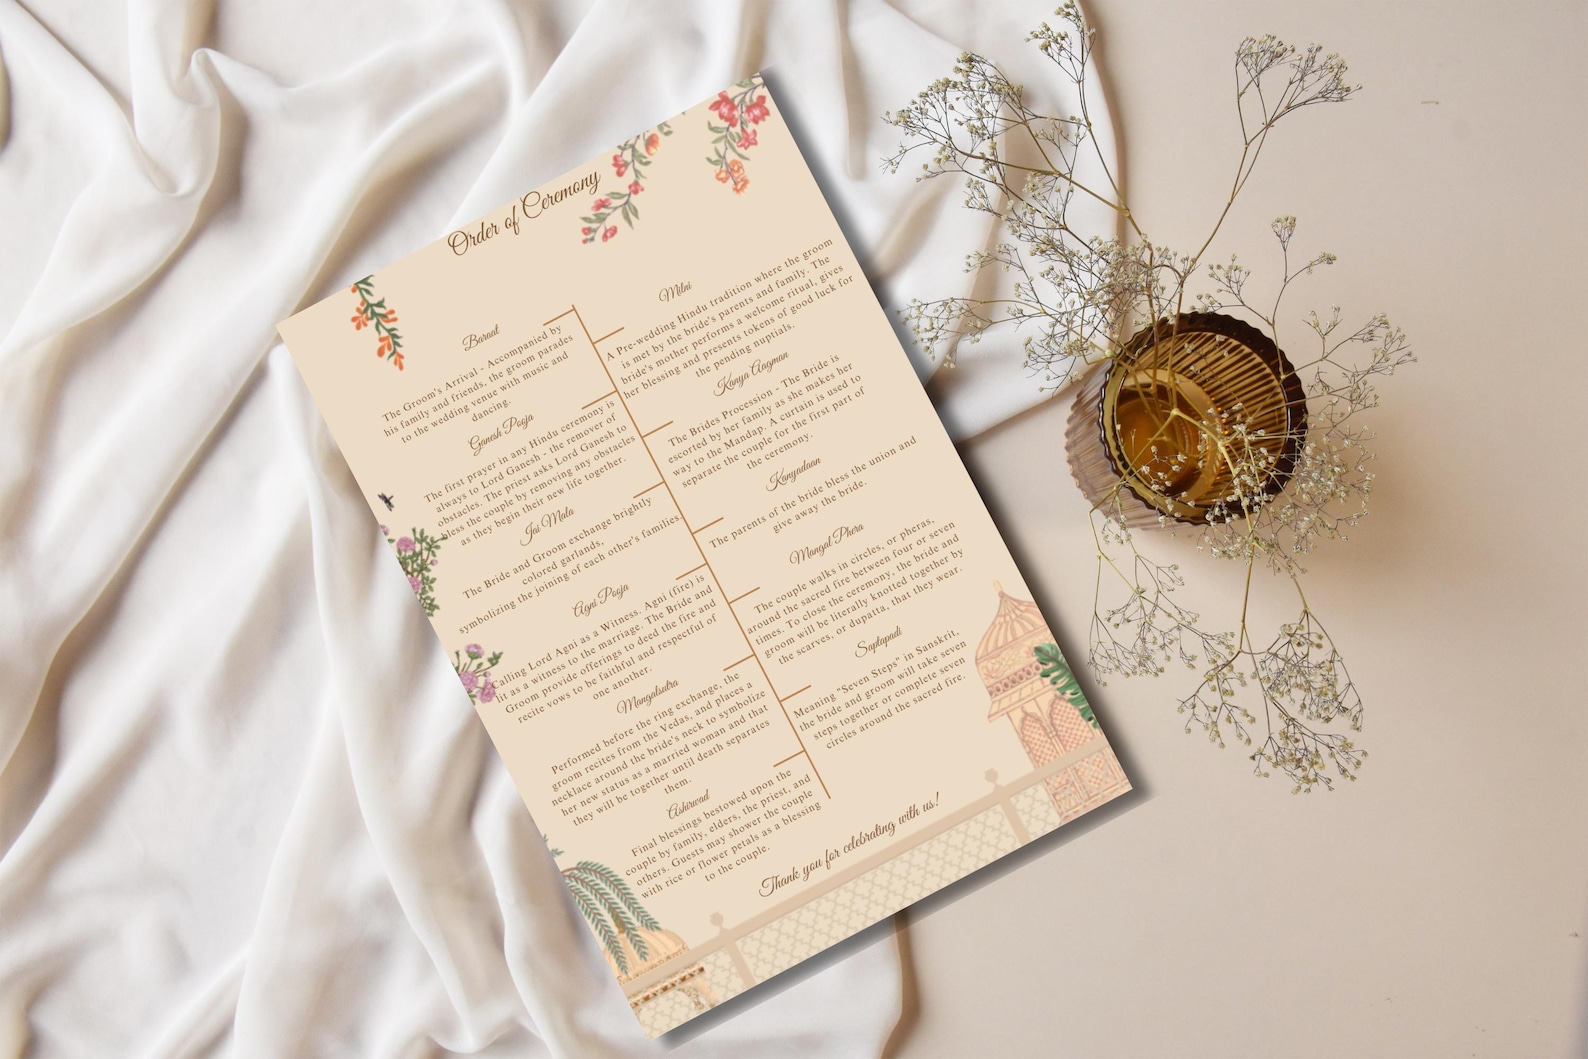 Order of Ceremony
Baraat
The Groom's Arrival - Accompanied by
his family and friends, the groom parades
to the wedding venue with music and
dancing.
Milni
A Pre-wedding Hindu tradition where the groom
is met by the bride's parents and family. The
bride's mother performs a welcome ritual, gives
her blessing and presents tokens of good luck for
the pending nuptials.
Ganesh Pooja
The first prayer in any Hindu ceremony is
always to Lord Ganesh - the remover of
obstacles. The priest asks Lord Ganesh to
bless the couple by removing any obstacles
as they begin their new life together.
Kanya Aagman
The Brides Procession - The Bride is
escorted by her family as she makes her
way to the Mandap. A curtain is used to
separate the couple for the first part of
the ceremony.
Jai Mala
The Bride and Groom exchange brightly
colored garlands,
symbolizing the joining of each other's families.
Kanyadaan
The parents of the bride bless the union and
give away the bride.
Agni Pooja
Calling Lord Agni as a Witness. Agni (fire) is
lit as a witness to the marriage. The Bride and
Groom provide offerings to deed the fire and
recite vows to be faithful and respectful of
one another.
Mangal Phera
The couple walks in circles, or pheras,
around the sacred fire between four or seven
times. To close the ceremony, the bride and
groom will be literally knotted together by
the scarves, or dupatta, that they wear.
Mangalsutra
Performed before the ring exchange, the
groom recites from the Vedas, and places a
necklace around the bride's neck to symbolize
her new status as a married woman and that
they will be together until death separates
them.
Saptapadi
Meaning "Seven Steps" in Sanskrit,
the bride and groom will take seven
steps together or complete seven
circles around the sacred fire.
Ashirwad
Final blessings bestowed upon the
couple by family, elders, the priest, and
others. Guests may shower the couple
with rice or flower petals as a blessing
to the couple.
Thank you for celebrating with us!